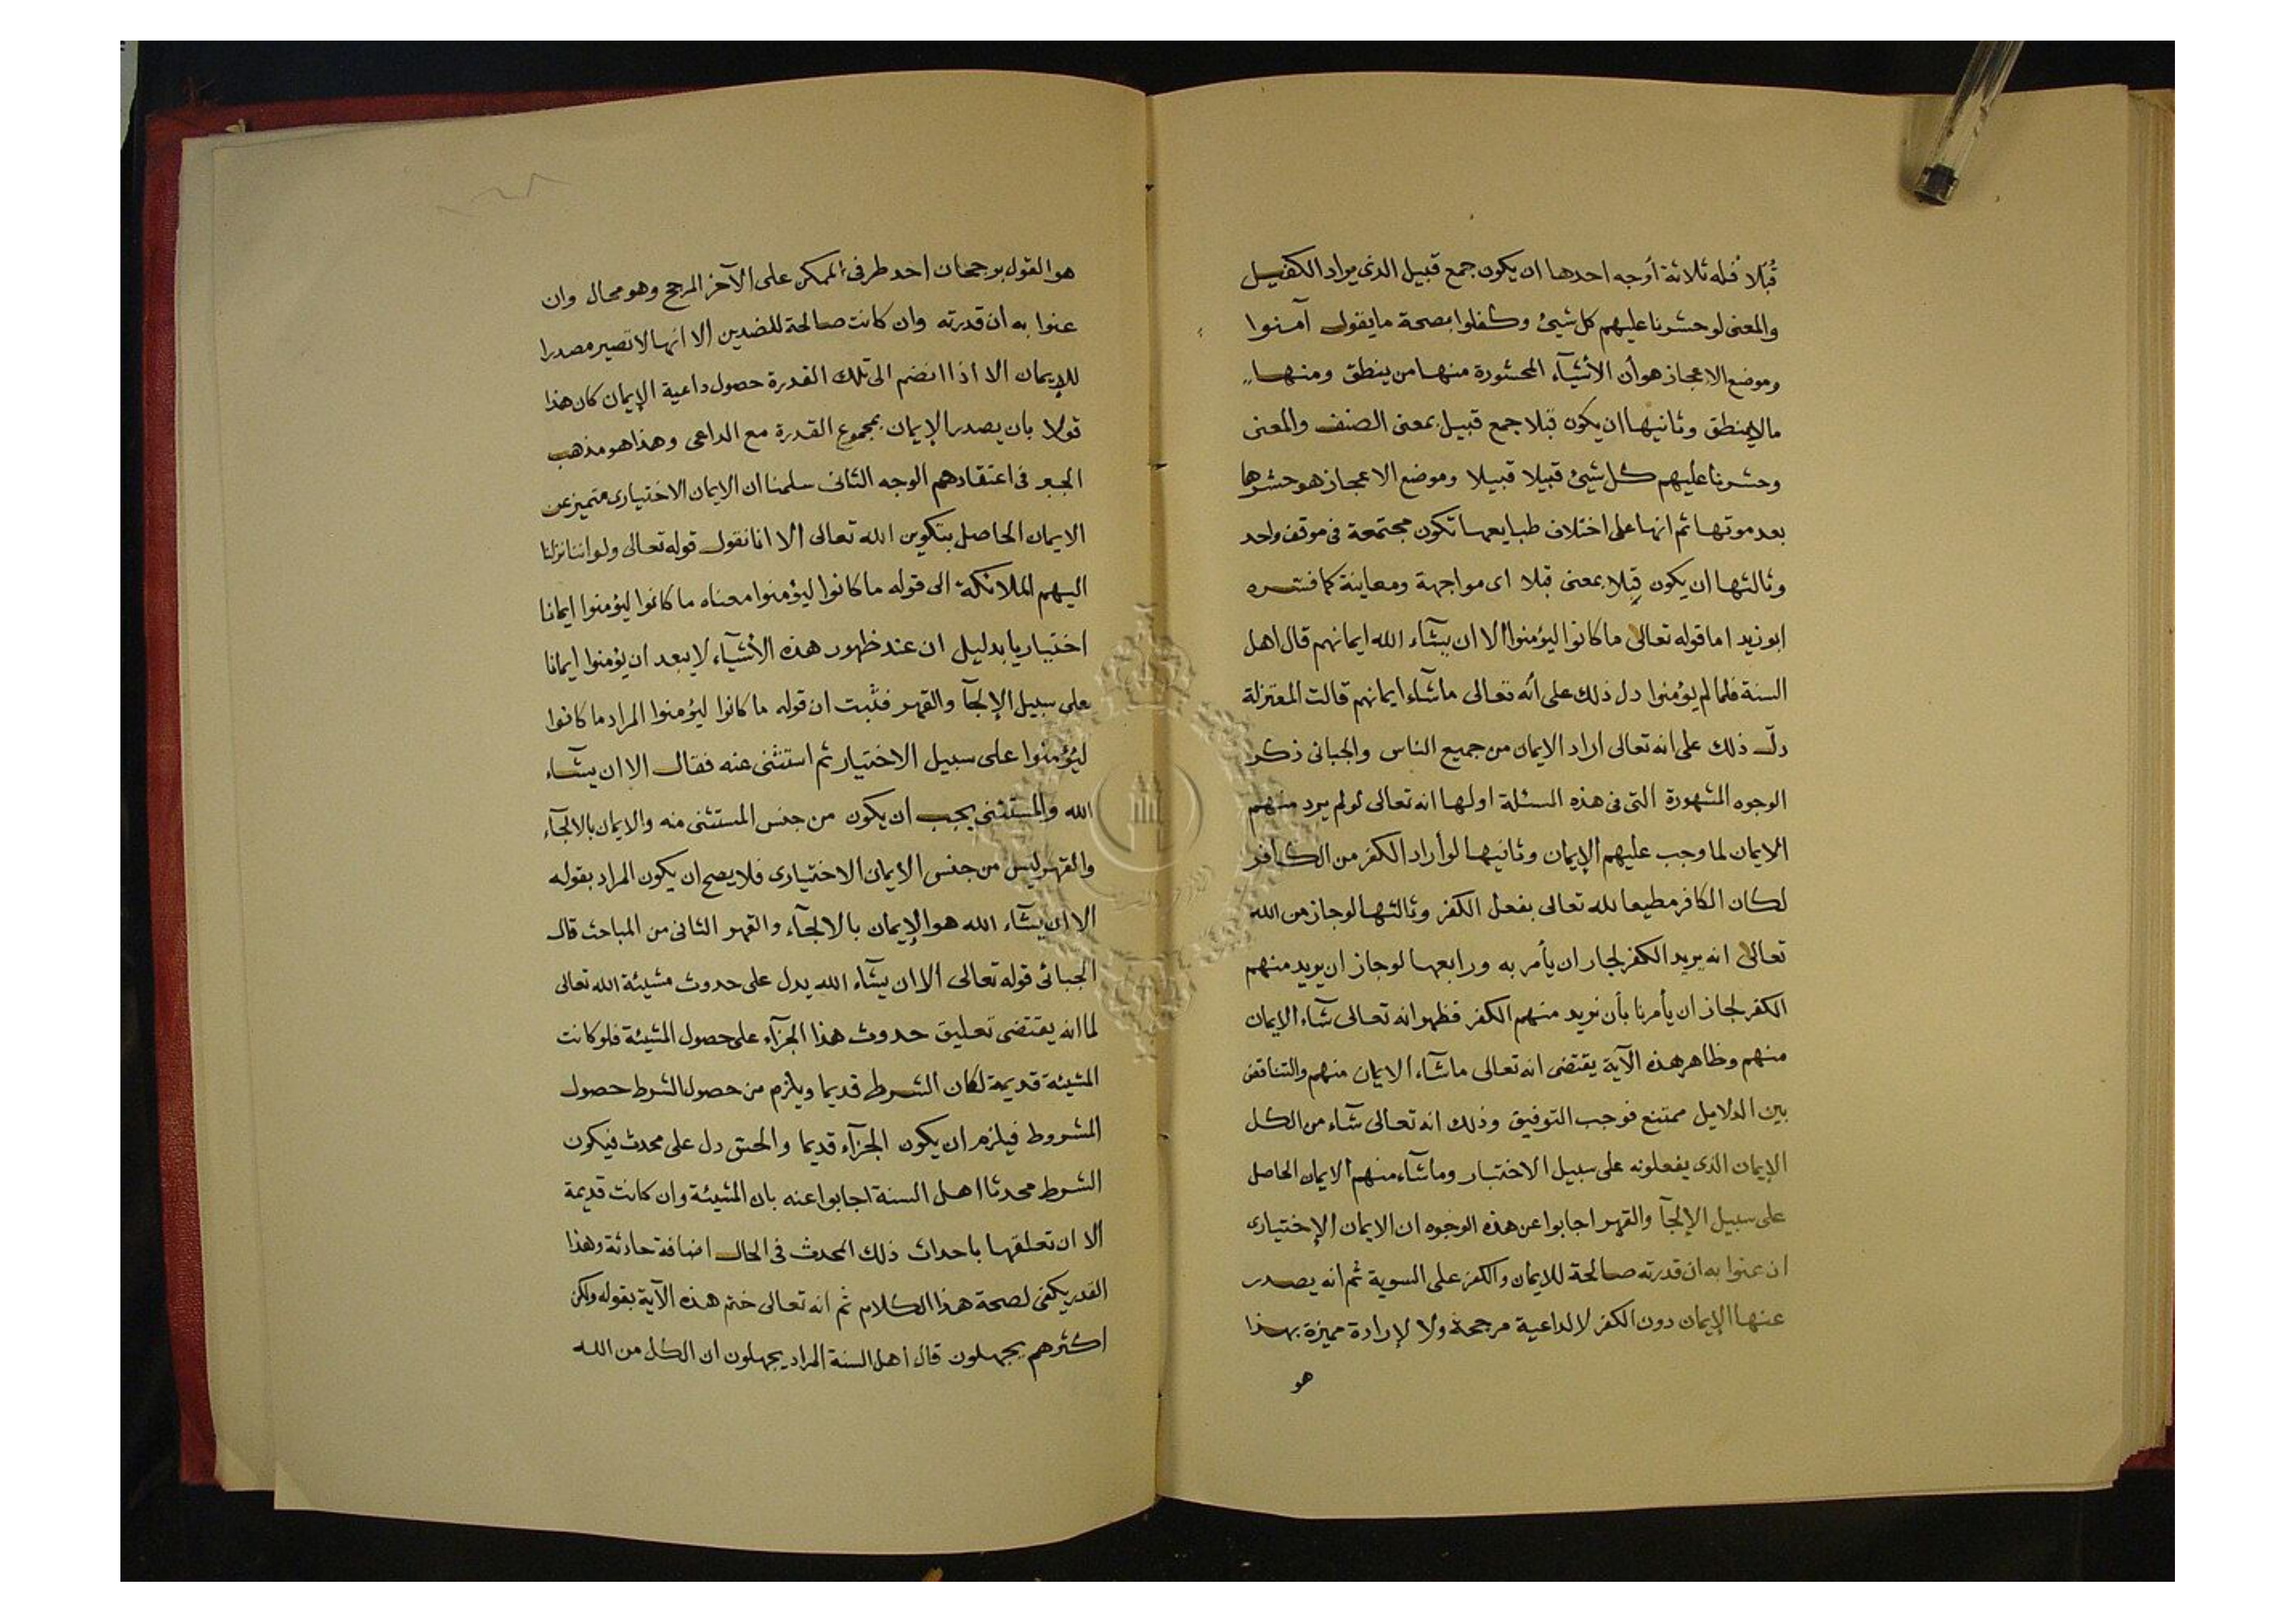 قُبُلًا فله ثلاثة أوجه احدها ان يكون جمع قبيل الذي يراد الكفيل
والمعنى لو حشرنا عليهم كل شيئ وكفلوا بصحة ما يقول آمنوا
وموضع الاعجاز هو أن الأشيآء المحشورة منها من ينطق ومنها
ما لاينطق وثانيها ان يكون قبلا جمع قبيل بمعنى الصنف والمعنى
وحشرنا عليهم كل شيئ قبيلا قبيلا وموضع الاعجاز هو حشرها
بعد موتها ثم انها على اختلاف طبايعها تكون مجتمعة في موقف واحد
وثالثها ان يكون قِبلا بمعنى قبلا اى مواجهة ومعاينة كما فسره
ابو زيد اما قوله تعالى ما كانوا ليؤمنوا الا ان يشآء الله ايمانهم قال اهل
السنة فلما لم يؤمنوا دل ذلك على أنه تعالى ماشاء ايمانهم قالت المعتزلة
دلّ ذلك على انه تعالى اراد الايمان من جميع الناس والجبائى ذكر
الوجوه المشهورة التى فى هذه المسئلة اولها انه تعالى لو لم يرد منهم
الايمان لما وجب عليهم الإيمان وثانيها لو أراد الكفر من الكافر
لكان الكافر مطيعا لله تعالى بفعل الكفر وثالثها لو جاز من الله
تعالى انه يريد الكفر لجاز ان يأمر به ورابعها لو جاز ان يريد منهم
الكفر لجاز ان يأمرنا بأن نريد منهم الكفر فظهر انه تعالى شآء الايمان
منهم وظاهر هذه الآية يقتضى انه تعالى ماشآء الايمان منهم والتناقض
بين الدلايل ممتنع فوجب التوفيق وذلك انه تعالى شآء من الكل
الإيمان الذى يفعلونه على سبيل الاختيار وماشآء منهم الايمان الحاصل
على سبيل الإلجآ والقهر اجابوا عن هذه الوجوه ان الايمان الإختيارى
ان عنوا به ان قدرته صالحة للايمان والكفر على السوية ثم انه يصدر
عنها الإيمان دون الكفر لا لداعية مرجحة ولا لإرادة مميزة بهذا
هو
هو القول برجحان احد طرفى الممكن على الآخر المرجح وهو محال وان
عنوا به ان قدرته وان كانت صالحة للضدين الا انها لا تصير مصدرا
للإيمان الا اذا انضم الى تلك القدرة حصول داعية الإيمان كان هذا
قولا بان يصدر الإيمان بمجموع القدرة مع الداعى وهذا هو مذهب
الجبر فى اعتقادهم الوجه الثانى سلمنا ان الايمان الاختيارى متميز عن
الايمان الحاصل بتكوين الله تعالى الا انا نقول قوله تعالى ولو اننا نزلنا
اليهم الملائكة الى قوله ما كانوا ليؤمنوا معناه ما كانوا ليؤمنوا ايمانا
اختياريا بدليل ان عند ظهور هذه الأشيآء لا يبعد ان يؤمنوا ايمانا
على سبيل الإلجآ والقهر فثبت ان قوله ما كانوا ليؤمنوا المراد ما كانوا
ليؤمنوا على سبيل الاختيار ثم استثنى عنه فقال الا ان يشآء
الله والمستثنى يجب ان يكون من جنس المستثنى منه والايمان بالالجآء
والقهر ليس من جنس الايمان الاختيارى فلا يصح ان يكون المراد بقوله
الا ان يشآء الله هو الإيمان بالالجآء والقهر الثانى من المباحث قال
الجبائى قوله تعالى الا ان يشآء الله يدل على حدوث مشيئة الله تعالى
لما انه يقتضى تعليق حدوث هذا الجزآء على حصول المشيئة فلو كانت
المشيئة قديمة لكان الشرط قديما ويلزم من حصول الشرط حصول
المشروط فيلزم ان يكون الجزآء قديما والحق دل على محدث فيكون
الشرط محدثا اهل السنة اجابوا عنه بان المشيئة وان كانت قديمة
الا ان تعلقها باحداث ذلك المحدث فى الحال اضافة حادثة وهذا
القدر يكفى لصحة هذا الكلام ثم انه تعالى ختم هذه الآية بقوله ولكن
اكثرهم يجهلون قال اهل السنة المراد يجهلون ان الكل من الله